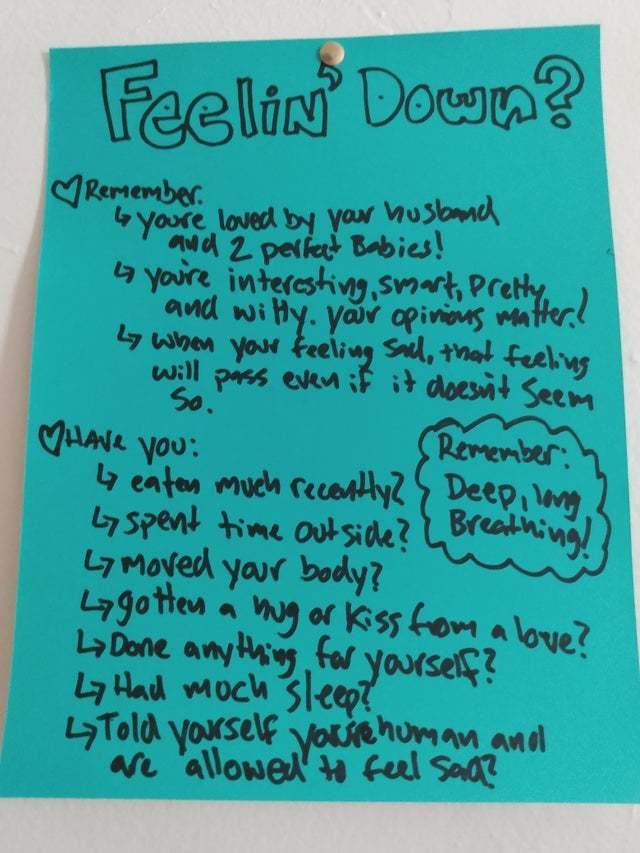 Feelin' Down?
Remember:
↳ you're loved by your husband
and 2 perfect Babies!
↳ you're interesting, smart, Pretty
and witty. your opinions matter!
↳ when your feeling sad, that feeling
will pass even if it doesn't seem
So.
HAVE you:
↳ eaten much recently?
↳ spent time outside?
↳ moved your body?
↳ gotten a hug or kiss from a love?
↳ Done anything for yourself?
↳ Had much sleep?
↳ Told yourself you're human and
are allowed to feel sad?
Remember:
Deep, long
Breathing!